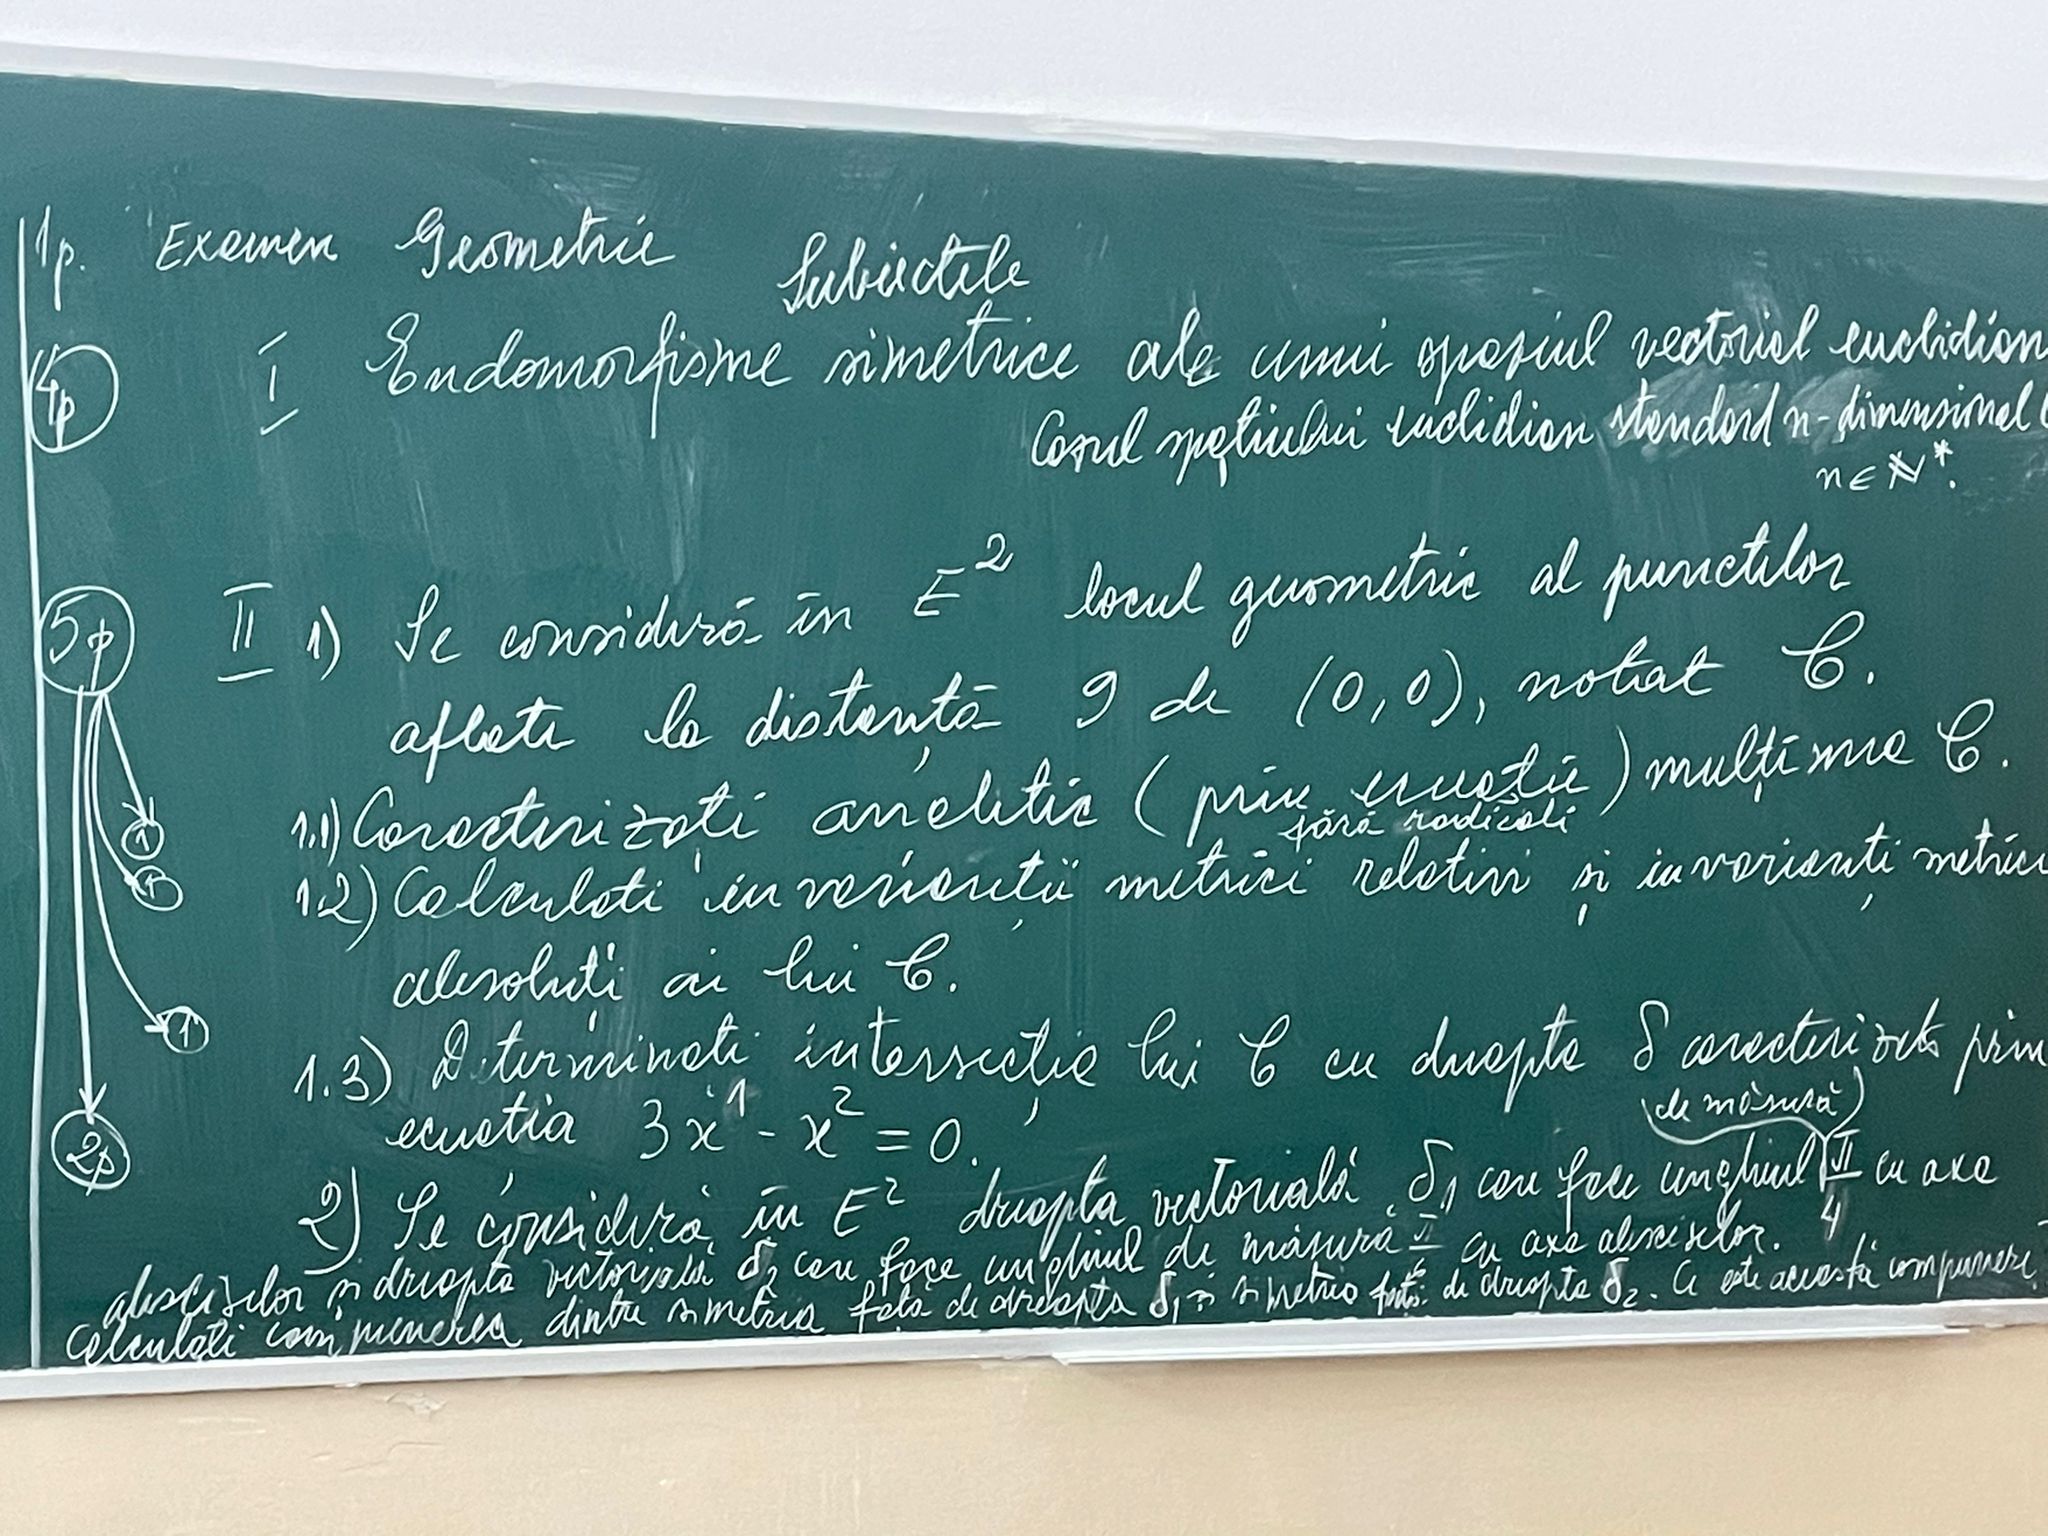 1p. Examen Geometrie
Subiectele
4p I Endomorfisme simetrice ale unui spațiul vectorial euclidian
Cazul spațiului euclidian standard n-dimensional
n∈ℕ*.
5p II 1) Se consideră în E² locul geometric al punctelor
aflate la distanță 9 de (0,0), notat C.
1.1) Caracterizați analitic (prin ecuație) mulțimea C.
fără radicali
1 1.2) Calculați invarianții metrici relativi și invarianți metrici
1 absoluți ai lui C.
1 1.3) Determinați intersecția lui C cu dreapta δ caracterizată prin
ecuația 3x¹ - x² = 0.
(de măsură)
2p 2) Se consideră în E² dreapta vectorială δ₁ care face unghiul π/4 cu axa
absciselor și dreapta vectorială δ₂ care face unghiul de măsură π/6 cu axa absciselor.
Calculați compunerea dintre simetria față de dreapta δ₁ și simetria față de dreapta δ₂. Ce este această compunere